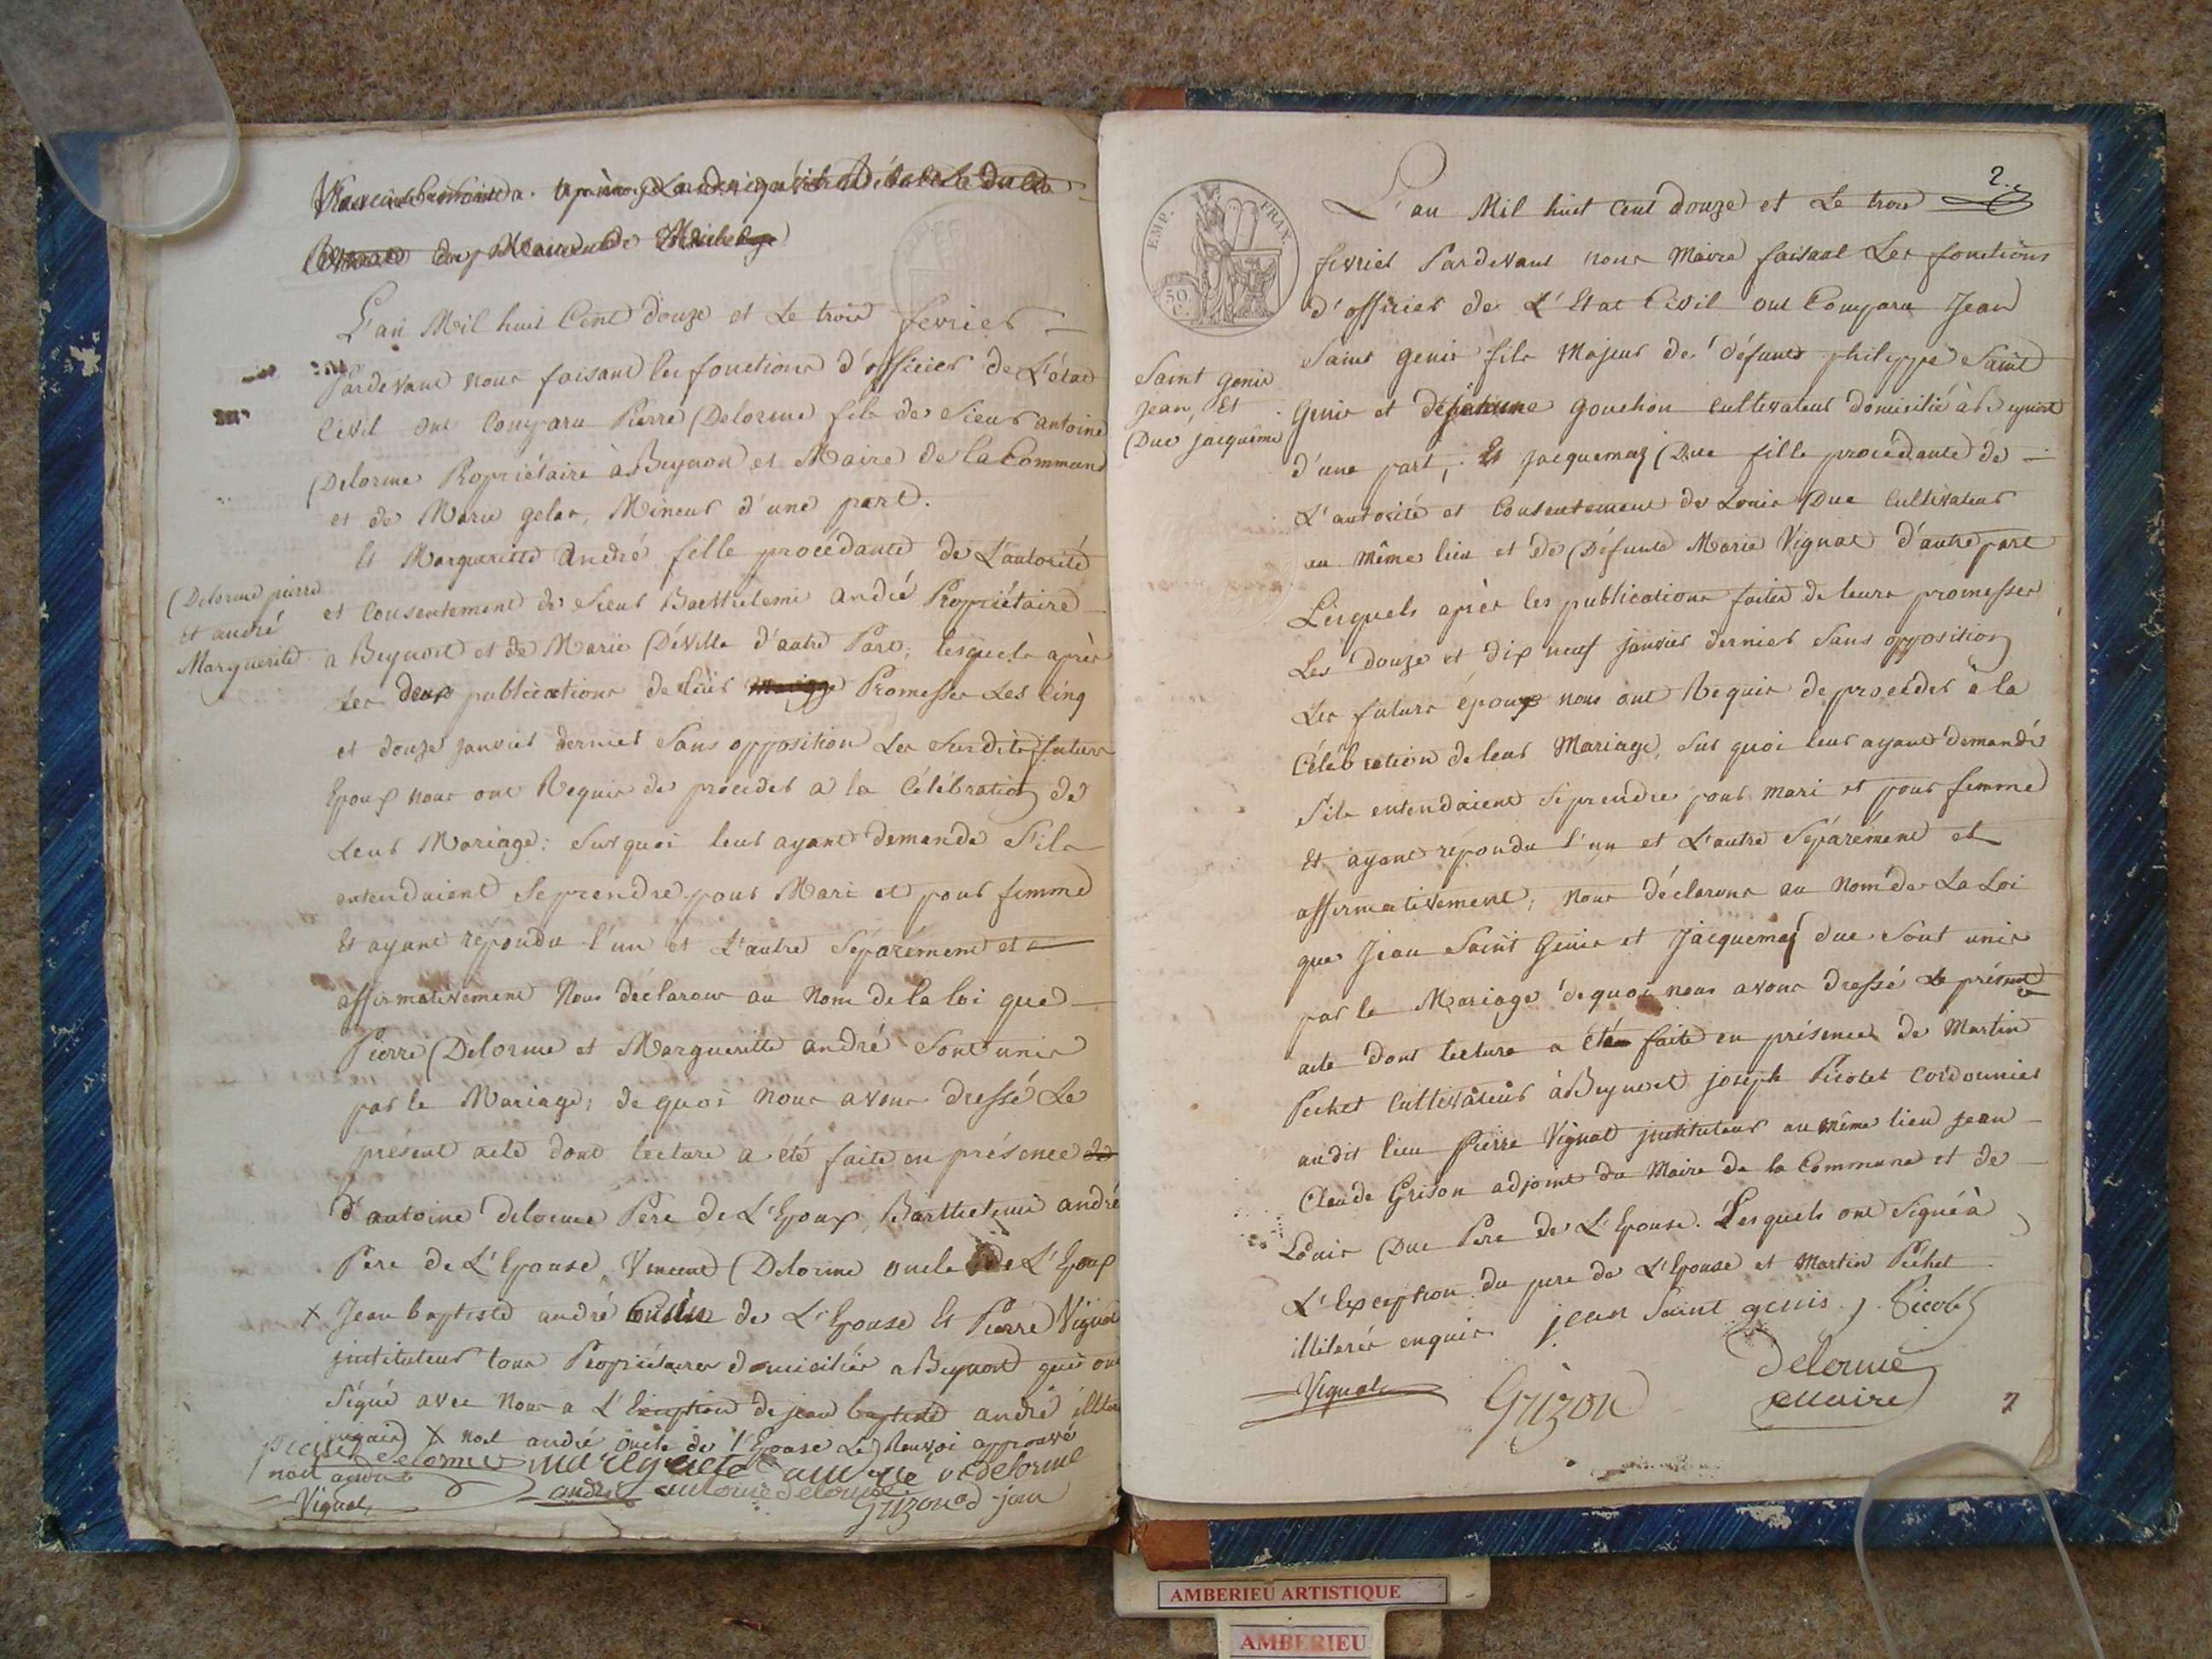 L'an Mil huit Cent douze et le trois fevrier
Pardevant nous faisant les fonctions d'officier de L'état
Civil ont Comparu Pierre Delorme fils de Sieur antoine
Delorme Propriétaire à Beynost et Maire de la Commune
et de Marie gelas, Mineur d'une part.
Et Margueritte André fille procédante de L'autorité
Delorme pierre
et andré
Marguerite
et Consentement de Sieur Barthelemi andré Propriétaire
a Beynost et de Marie Déville d'autre Part, lesquels après
les deux publications de leurs Promesses Les Cinq
et douze janvier dernier Sans opposition Les Susdits futurs
Epoux nous ont Requis de procéder a la Célébration de
Leur Mariage; Sur quoi leur ayant demandé S'ils
entendaient Se prendre pour Mari et pour femme
Et ayant repondu l'un et L'autre Séparément et
affirmativement Nous déclarons au Nom de la loi que
Pierre Delorme et Margueritte andré Sont unis
par le Mariage; de quoi nous avons dressé Le
présent acte dont lecture a été faite en présence
d'antoine delorme Père de L'Epoux, Barthelemi andré
Père de L'Epouse, Vincent Delorme oncle de L'Epoux
X Jean baptiste andré de L'Epouse Et Pierre Vignat
instituteur tous Propriétaires domiciliés a Beynost qui ont
Signé avec Nous a L'Exception de jean baptiste andré
X noel andré oncle de l'Epouse Le Renvoi approuvé
pierre delorme marguerite andre v delorme
noel andré
andré antoine delorme
Vignat
Grizon adjoin
2.
EMP. FRAN.
50 C.
L'an Mil huit Cent douze et Le trois
fevrier Pardevant nous Maire faisant Les fonctions
d'officier de L'Etat Civil ont Comparu Jean
Saint genis
jean, Et
Duc jacquême
Saint genis fils Majeur de défunts philippe Saint
Genis et gouchon Cultivateur domicilié à Beynost
d'une part; Et jacquemaz Duc fille procédante de
L'autorité et Consentement de Louis Duc Cultivateur
au même lieu et de Défunte Marie Vignat d'autre part
Lesquels après les publications faites de leurs promesses
Les douze et dix neuf janvier dernier Sans opposition
Les futurs époux nous ont Requis de proceder à la
Célébration de leur Mariage, Sur quoi leur ayant demandé
S'ils entendaient Se prendre pour mari et pour femme
Et ayant répondu l'un et L'autre Séparément et
affirmativement; nous déclarons au Nom de La Loi
que Jean Saint Genis et Jacquemaz duc Sont unis
par le Mariage de quoi nous avons dressé Le présent
acte dont lecture a été faite en présence de Martin
Péchet Cultivateur à Beynost joseph Picolet Cordonnier
audit lieu Pierre Vignat jnstituteur au même lieu jean
Claude Grison adjoint du Maire de la Commune et de
Louis Duc Pere de L'Epouse. Lesquels ont Signé à
L'Exception du pere de L'Epouse et Martin Péchet
illiterés enquis. jean Saint genis. j. Picolet
Vignat
Grizon
Delorme
Maire
AMBERIEU ARTISTIQUE
AMBERIEU